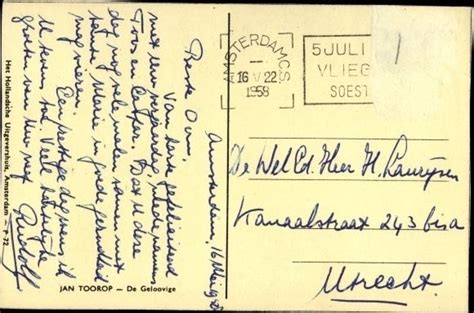 Amsterdam, 16 Mei 1958
Beste Oom,
Van harte gefeliciteerd
met Uw verjaardag, mede namens
Toos en Esther. Dat U deze
dag nog vele malen samen met
tante Marie in goede gezondheid
mag vieren.
Een prettige dag wens ik
U toe. Veel hartelijke
groeten van Uw neef
Rudolf
JAN TOOROP — De Geloovige
Het Hollandsche Uitgevershuis, Amsterdam — P-72
AMSTERDAM CS
16 V 22
1958
5 JULI
VLIEG
SOEST
De Wel Ed. Heer H. Laurijsen
Kanaalstraat 243 bis a
Utrecht.